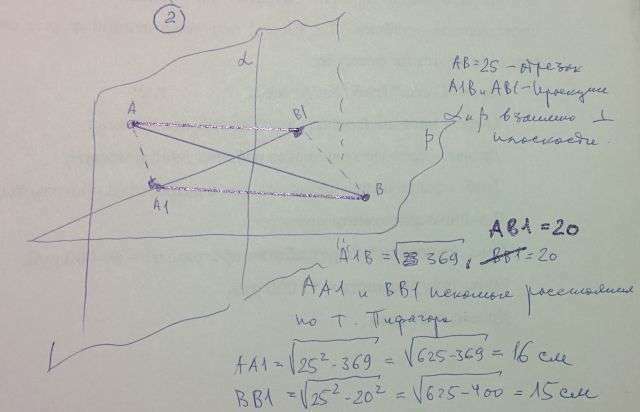 2
α
A
B1
A1
B
β
AB=25 - отрезок
A1B и AB1 - проекции
α и β взаимно ⊥
плоскости.
AB1 = 20
A1B = √369, BB1 = 20
AA1 и BB1 искомые расстояния
по т. Пифагора
AA1 = √25² - 369 = √625-369 = 16 см
BB1 = √25² - 20² = √625-400 = 15 см